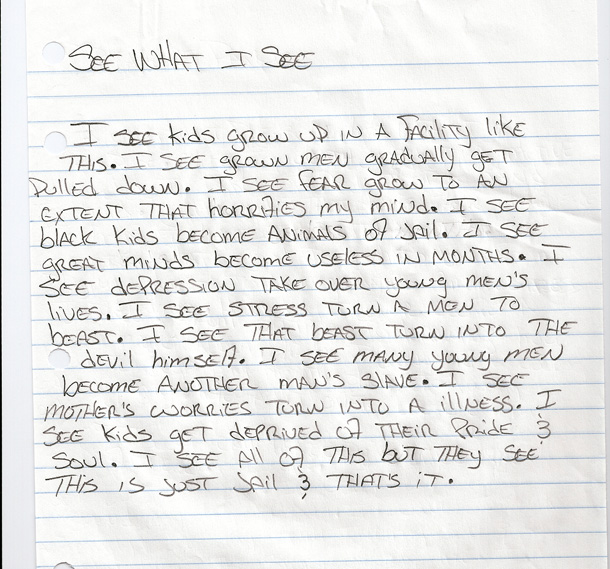 SEE WHAT I SEE
I SEE kids grow up IN A Facility like
THIS. I SEE grown men gradually get
pulled down. I SEE fear grow TO AN
EXTENT THAT horrifies my mind. I SEE
black kids become ANIMALS of jail. I SEE
great minds become useless IN MONTHS. I
SEE depression TAKE OVER young men's
lives. I SEE STRESS TURN A MEN TO
beast. I SEE THAT beast TURN INTO THE
devil himself. I SEE many young men
become ANOTHER man's slave. I SEE
MOTHER'S WORRIES TURN INTO A illness. I
SEE kids get deprived of THEIR Pride &
soul. I SEE All of THIS but THEY SEE
THIS IS JUST jail & THAT'S IT.